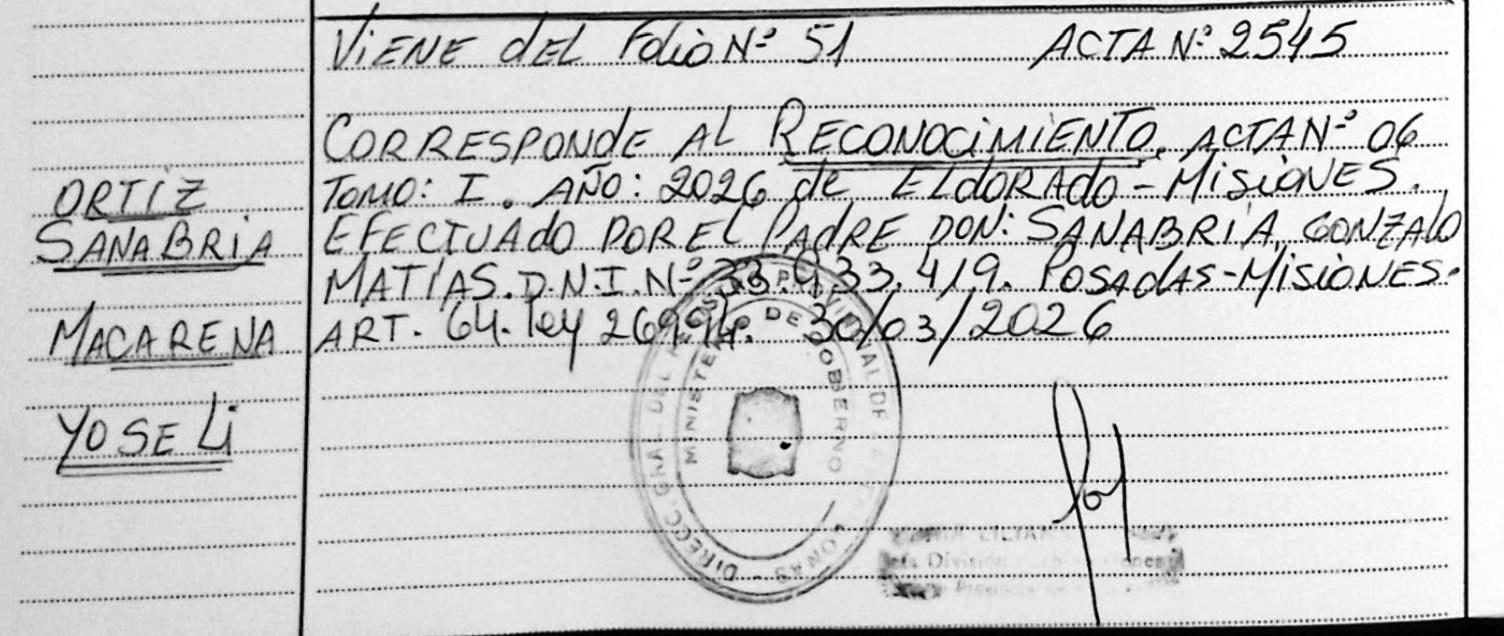 Viene del Folio Nº 51 ACTA Nº 2545
CORRESPONDE AL RECONOCIMIENTO. ACTA Nº 06
TOMO: I. AÑO: 2026 de ELdORADO - MISIONES.
EFECTUADO POR EL PADRE DON: SANABRIA, GONZALO
MATÍAS. D.N.I. Nº 33.933.419. POSADAS-MISIONES.
ART. 64. ley 26994. 30/03/2026
ORTIZ
SANABRIA
MACARENA
YOSELi
DIRECC. GRAL. DEL PROVINCIAL DE LAS PERSONAS
MINISTERIO DE GOBIERNO
División